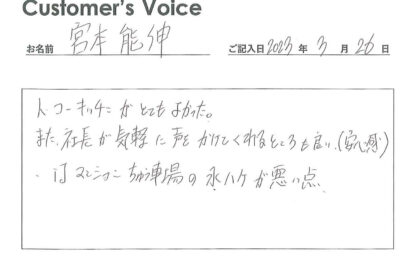 Customer's Voice
お名前 宮本 能伸 ご記入日 2023 年 3 月 26 日
人コーキッチンがとてもよかった。
また、社長が気軽に声をかけてくれるところも良い。(安心感)
・マンションちゅう車場の水ハケが悪い点